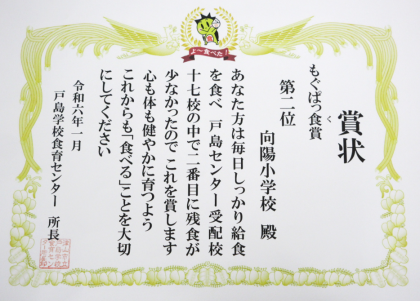 よ～食べた
賞状
もぐぱっ食賞
く
第二位
向陽小学校 殿
あなた方は毎日しっかり給食
を食べ 戸島センター受配校
十七校の中で二番目に残食が
少なかったので これを賞します
心も体も健やかに育つよう
これからも「食べる」ことを大切
にしてください
令和六年一月
戸島学校食育センター 所長